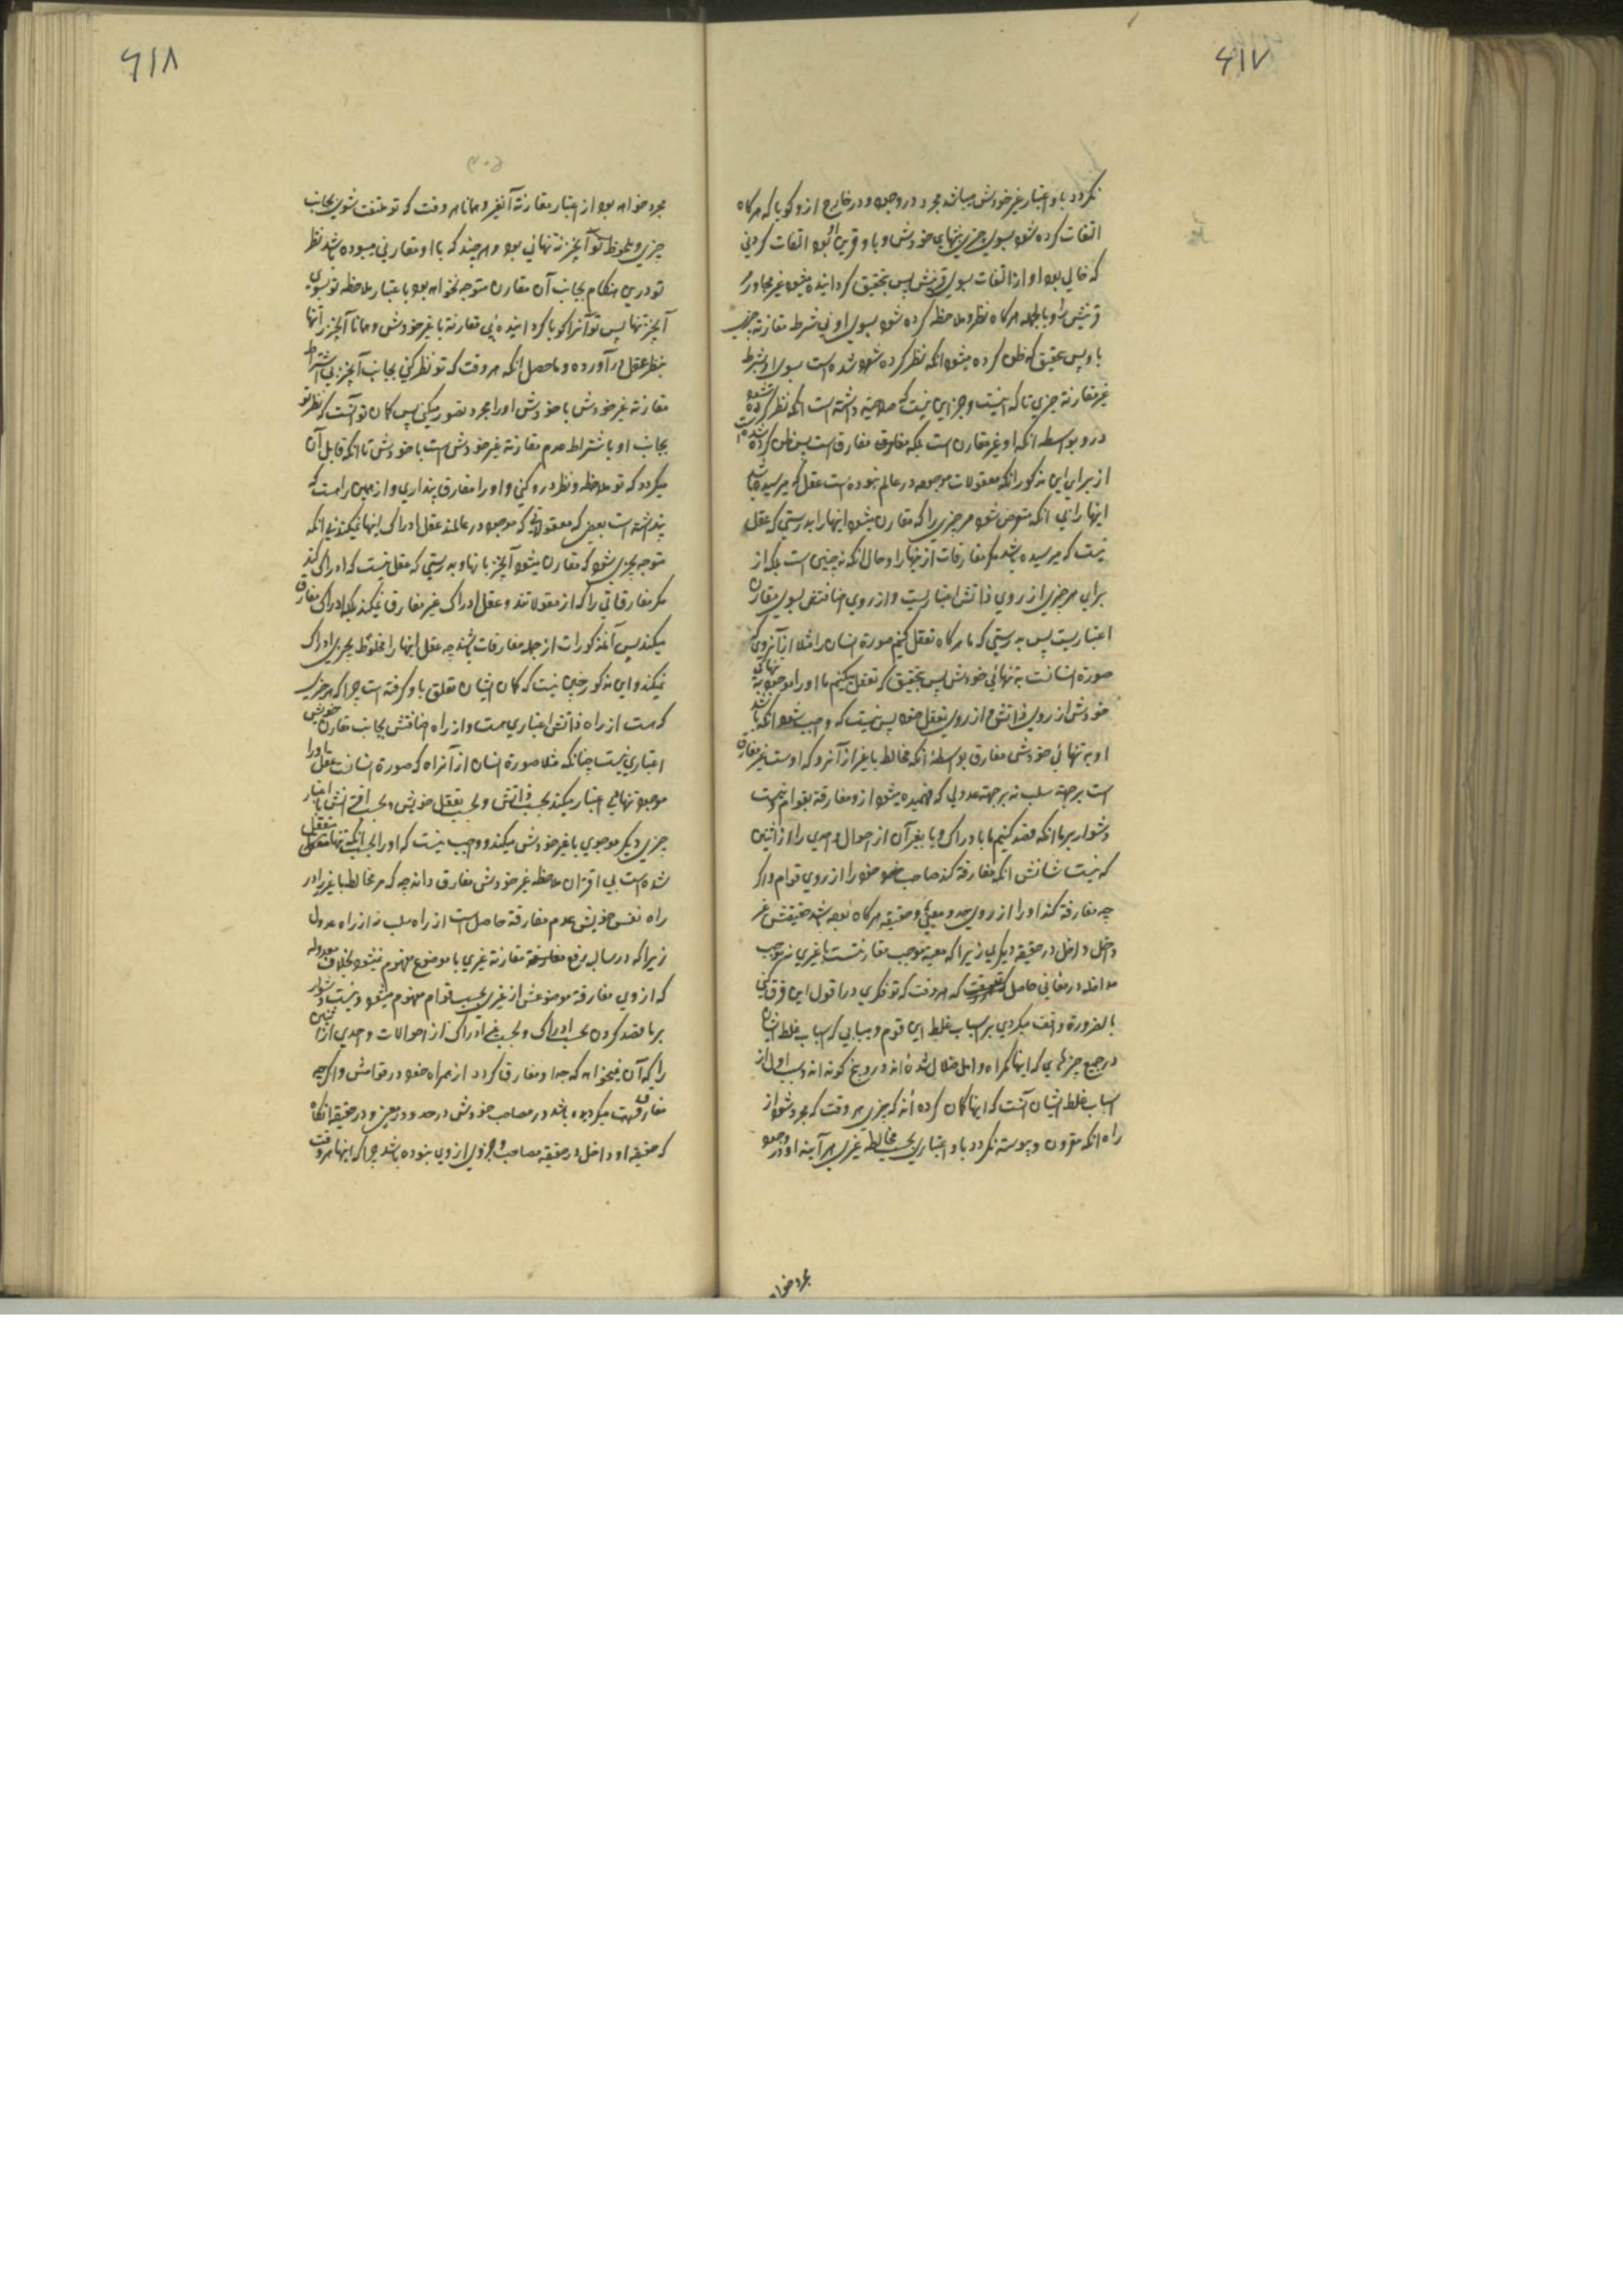 ۶۱۷
نکردد باو اعتبار غیر خودش میباشد مجرد در وجود و در خارج از و کویا که هرکاه
التفات کرده شود بسوی چیزی بتنهایی خودش و با و قرینی بود التفات کردنی
که خالی بود او از التفات بسوی قرینش پس بتحقیق کردانیده میشود غیر مجاور
قرینش را و بالجمله هرکاه نظر و ملاحظه کرده شود بسوی او بی شرط مقارنة چیزی
باو پس بتحقیق که ظن کرده میشود انکه نظر کرده شده است بسوی او بشرط
غیر مقارنة چیزی تا که نیست و جز این نیست که صلاحیة داشته است انکه نظر کرده شود
در و بواسطه انکه او غیر مقارن است بلکه مفارق است پس ظن کرده شده است
از برای این مذکور انکه معقولات موجوده در عالم نبوده است عقل که میرسیده باشد
اینها را بی انکه متعرض شود هر چیزی را که مقارن میشود اینها را بدرستی که عقل
نیست که میرسیده باشد مکر مفارقات از اینها را و حال انکه نه چنین است بلکه از
برای هر چیزی از روی ذاتش اعتباریست و از روی اضافتش بسوی مقارن
اعتباریست پس بدرستی که ما هرکاه تعقل کنیم صورة انسان را مثلا از آنروی که
صورة انسانست به تنهائی خودش پس بتحقیق که تعقل میکنیم ما او را موجود به تنهائی
خودش از روی ذاتش و از روی تعقل خود پس نیست که واجب شود انکه باشد
او به تنهائی خودش مفارق بواسطهٔ انکه مخالط با غیر از آنرو که اوست غیر مفارق
است بر جهة سلب نه بر جهة عدولی که فهمیده میشود ازو مفارقة بقوام و نیست
دشوار بر ما انکه قصد کنیم ما با دراک و یا بغیر آن از احوال واحدی را از اثنین
که نیست شانش انکه مفارقة کند صاحب خود را از روی قوام و اکر
چه مفارقة کند او را از روی حد و معنی و حقیقه هرکاه بوده باشد حقیقتش غیر
داخل در حقیقه دیکری زیرا که معیة موجب مقارنتست با غیری نه موجب
مداخله در معانی حاصل که هر وقت که تو فکر کردی در اقول این فرق کنی
بالضرورة واقف میکردی بر اسباب غلط این قوم و بیابی که اسباب غلط ایشان
در جمیع چیزهایی که اینها کمراه و اهل ضلال شده اند و دروغ کونه اند و سبب اول از
اسباب غلط ایشان آنست که اینها کمان کرده اند که چیزی هر وقت که مجرد شود از
راه انکه مقرون و پیوسته نکردد باو اعتباری بحسب مخالطه غیری هر آینه او در وجود
مجرد خواه
۶۱۸
مجرد خواهد بود از اعتبار مقارنة آنغیر و همانا هر وقت که تو ملتفت شوی بجانب
چیزی و ملحوظ تو آنچیز تنهائی بود و هر چند که با او مقارنی میبوده باشد نظر
تو در ین هنکام بجانب آن مقارن متوجه نخواهد بود باعتبار ملاحظه تو بسوی
آنچیز تنها پس تو آنرا کویا کردانیده ئی مقارنة با غیر خودش و همانا آنچیز را تنها
بنظر عقل در آورده و ما حصل انکه هر وقت که تو نظر کنی بجانب آنچیز بی اشتراط
مقارنة غیر خودش با خودش او را مجرد تصور میکنی پس کمان تو آنست که نظر تو
بجانب او باشتراط عدم مقارنة غیر خودش است با خودش تا انکه قابل آن
میکردد که تو ملاحظه و نظر در و کنی و او را مفارق پنداری و از همین راه است که
پنداشته است بعض که معقولاتی که موجود در عالمند عقل ادراک اینها نمیکند بی انکه
متوجه چیزی شود که مقارن میشود آنچیز بانها و بدرستی که عقل نیست که ادراک کند
مکر مفارقاتی را که از معقولاتند و عقل ادراک غیر مفارق نمیکند بلکه ادراک مفارق
میکند پس آنمذکورات از جمله مفارقات باشند چه عقل اینها را مخلوط بچیزی ادراک
نمیکند و این مذکور چنین نیست که کمان ایشان تعلق باو کرفته است چرا که هر چیزی
که هست از راه ذاتش اعتباری هست و از راه اضافتش بجانب مقارن خودش
اعتباری نیست چنانکه مثلا صورة انسان از آنراه که صورة انسانست عقل ما او را
موجود تنهایی اعتبار میکند بحسب ذاتش و بحسب تعقل خویش و بحسب اقترانش با اعتبار
چیزی دیکر موجودی با غیر خودش میکند و واجب نیست که او را بحسب انکه تنها متعقل
شده است بی اقتران ملاحظه غیر خودش مفارق داند چه که هر مخالط با غیر را در
راه نفس خویش عدم مفارقة حاصل است از راه سلب نه از راه عدول
زیرا که در سالبه رفع مقارنة غیری با موضوع مفهوم میشود بخلاف معدوله
که از وی مفارقة موضوعش از غیری بحسب قوام مفهوم میشود و نیست دشوار
بر ما قصد کردن بحسب ادراک و بحسب غیر ادراک از احوالات واحدی از اثنین
را که آن نمیخواهد که جدا و مفارق کردد از همراه خود در قوامش و اکرچه
مفارق میکردیده باشد در مصاحب خودش در حد و در معنی و در حقیقه انکاه
که حقیقه او داخل در حقیقه مصاحب و جزوی از وی نبوده باشد چرا که اینها هر وقت